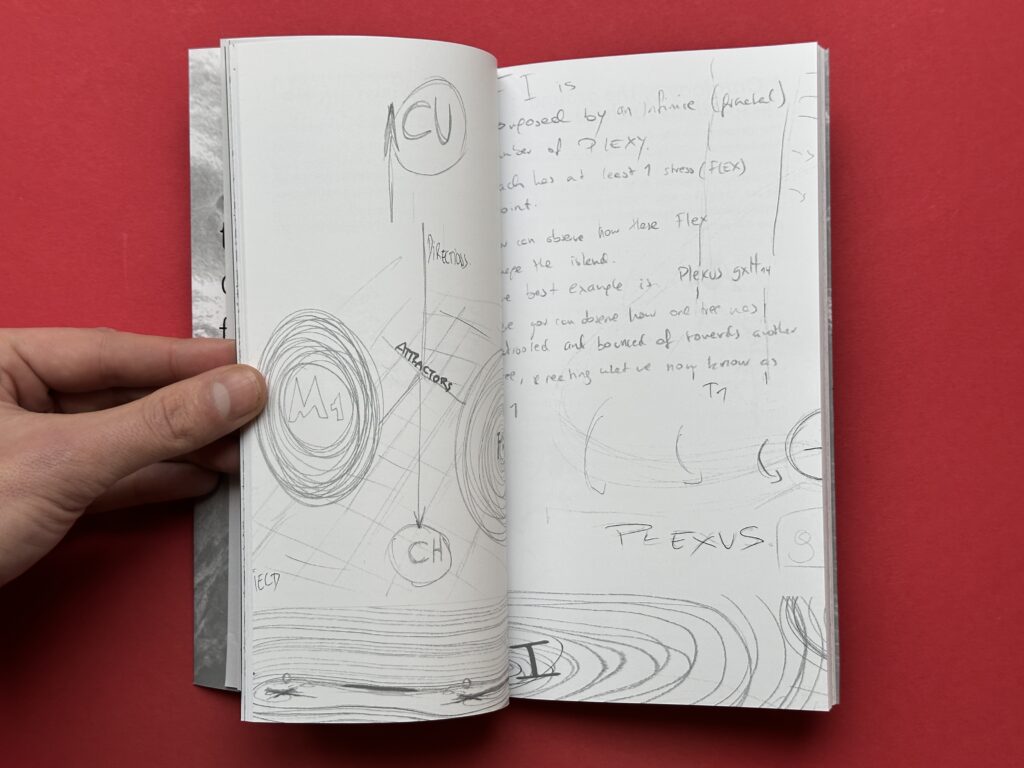 CU
DIRECTIONS
ATTRACTORS
M1
CH
IECD
I is
by an Infinite (fractal)
of PLEXY.
has at least 1 stress (FLEX)
oint.
can observe how these Flex
the island.
best example is Plexus gxH14
you can observe how one tree was
and bounced of towards another
creating what we now know as
T1
1
PLEXUS
I